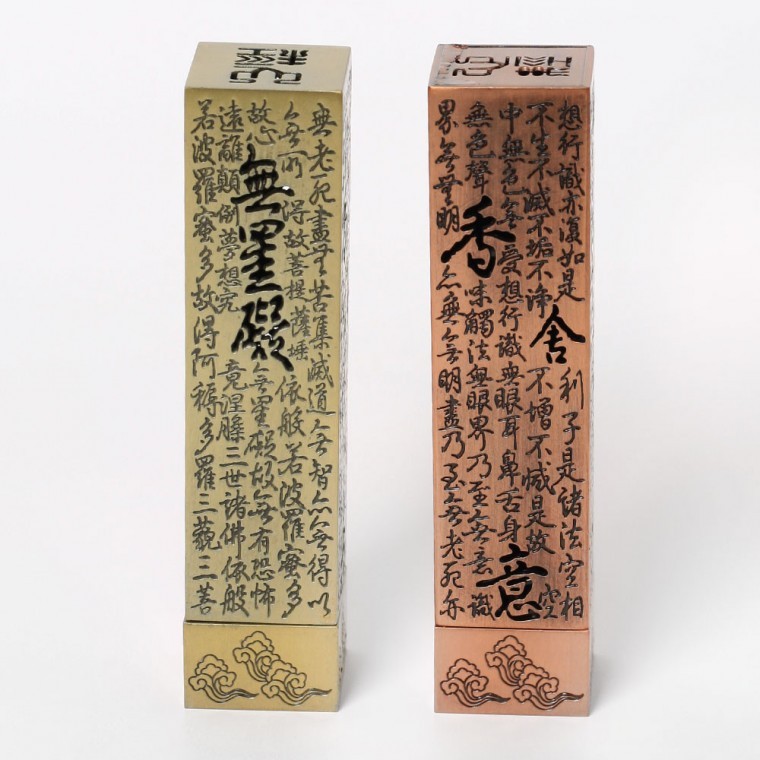 心經
無老死盡無苦集滅道無智亦無得以
無所得故菩提薩埵依般若波羅蜜多
故心無罣礙無罣礙故無有恐怖
遠離顛倒夢想究竟涅槃三世諸佛依般
若波羅蜜多故得阿耨多羅三藐三菩
想行識亦復如是舍利子是諸法空相
不生不滅不垢不淨不增不減是故空
中無色無受想行識無眼耳鼻舌身意
無色聲香味觸法無眼界乃至無意識
界無無明亦無無明盡乃至無老死亦